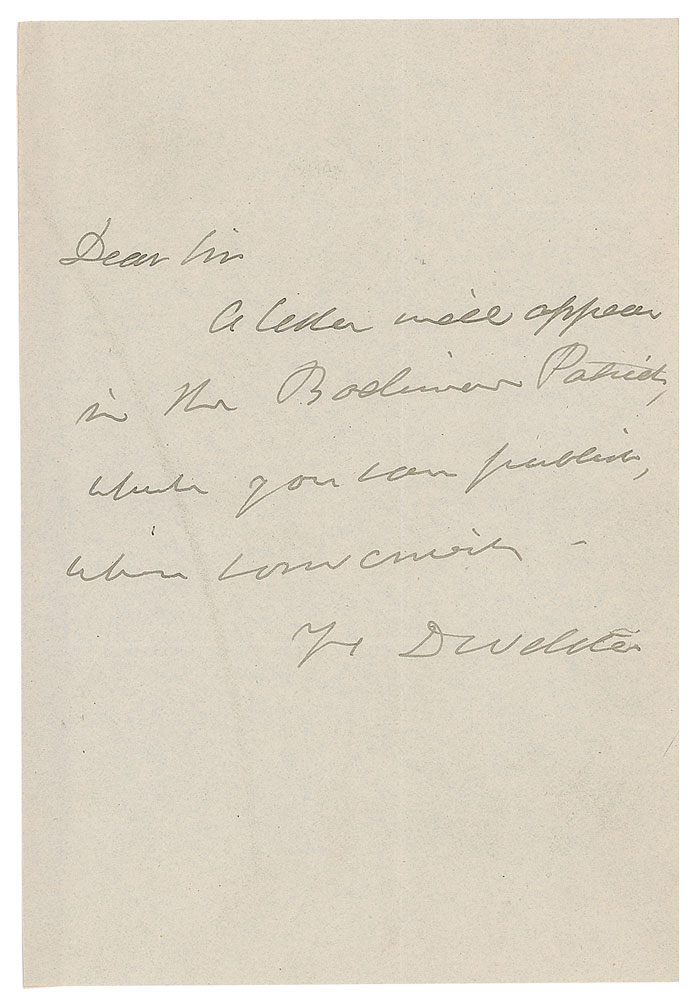 Dear Sir
A letter will appear
in the Baltimore Patriot,
which you can publish,
when convenient -
Yr D Webster